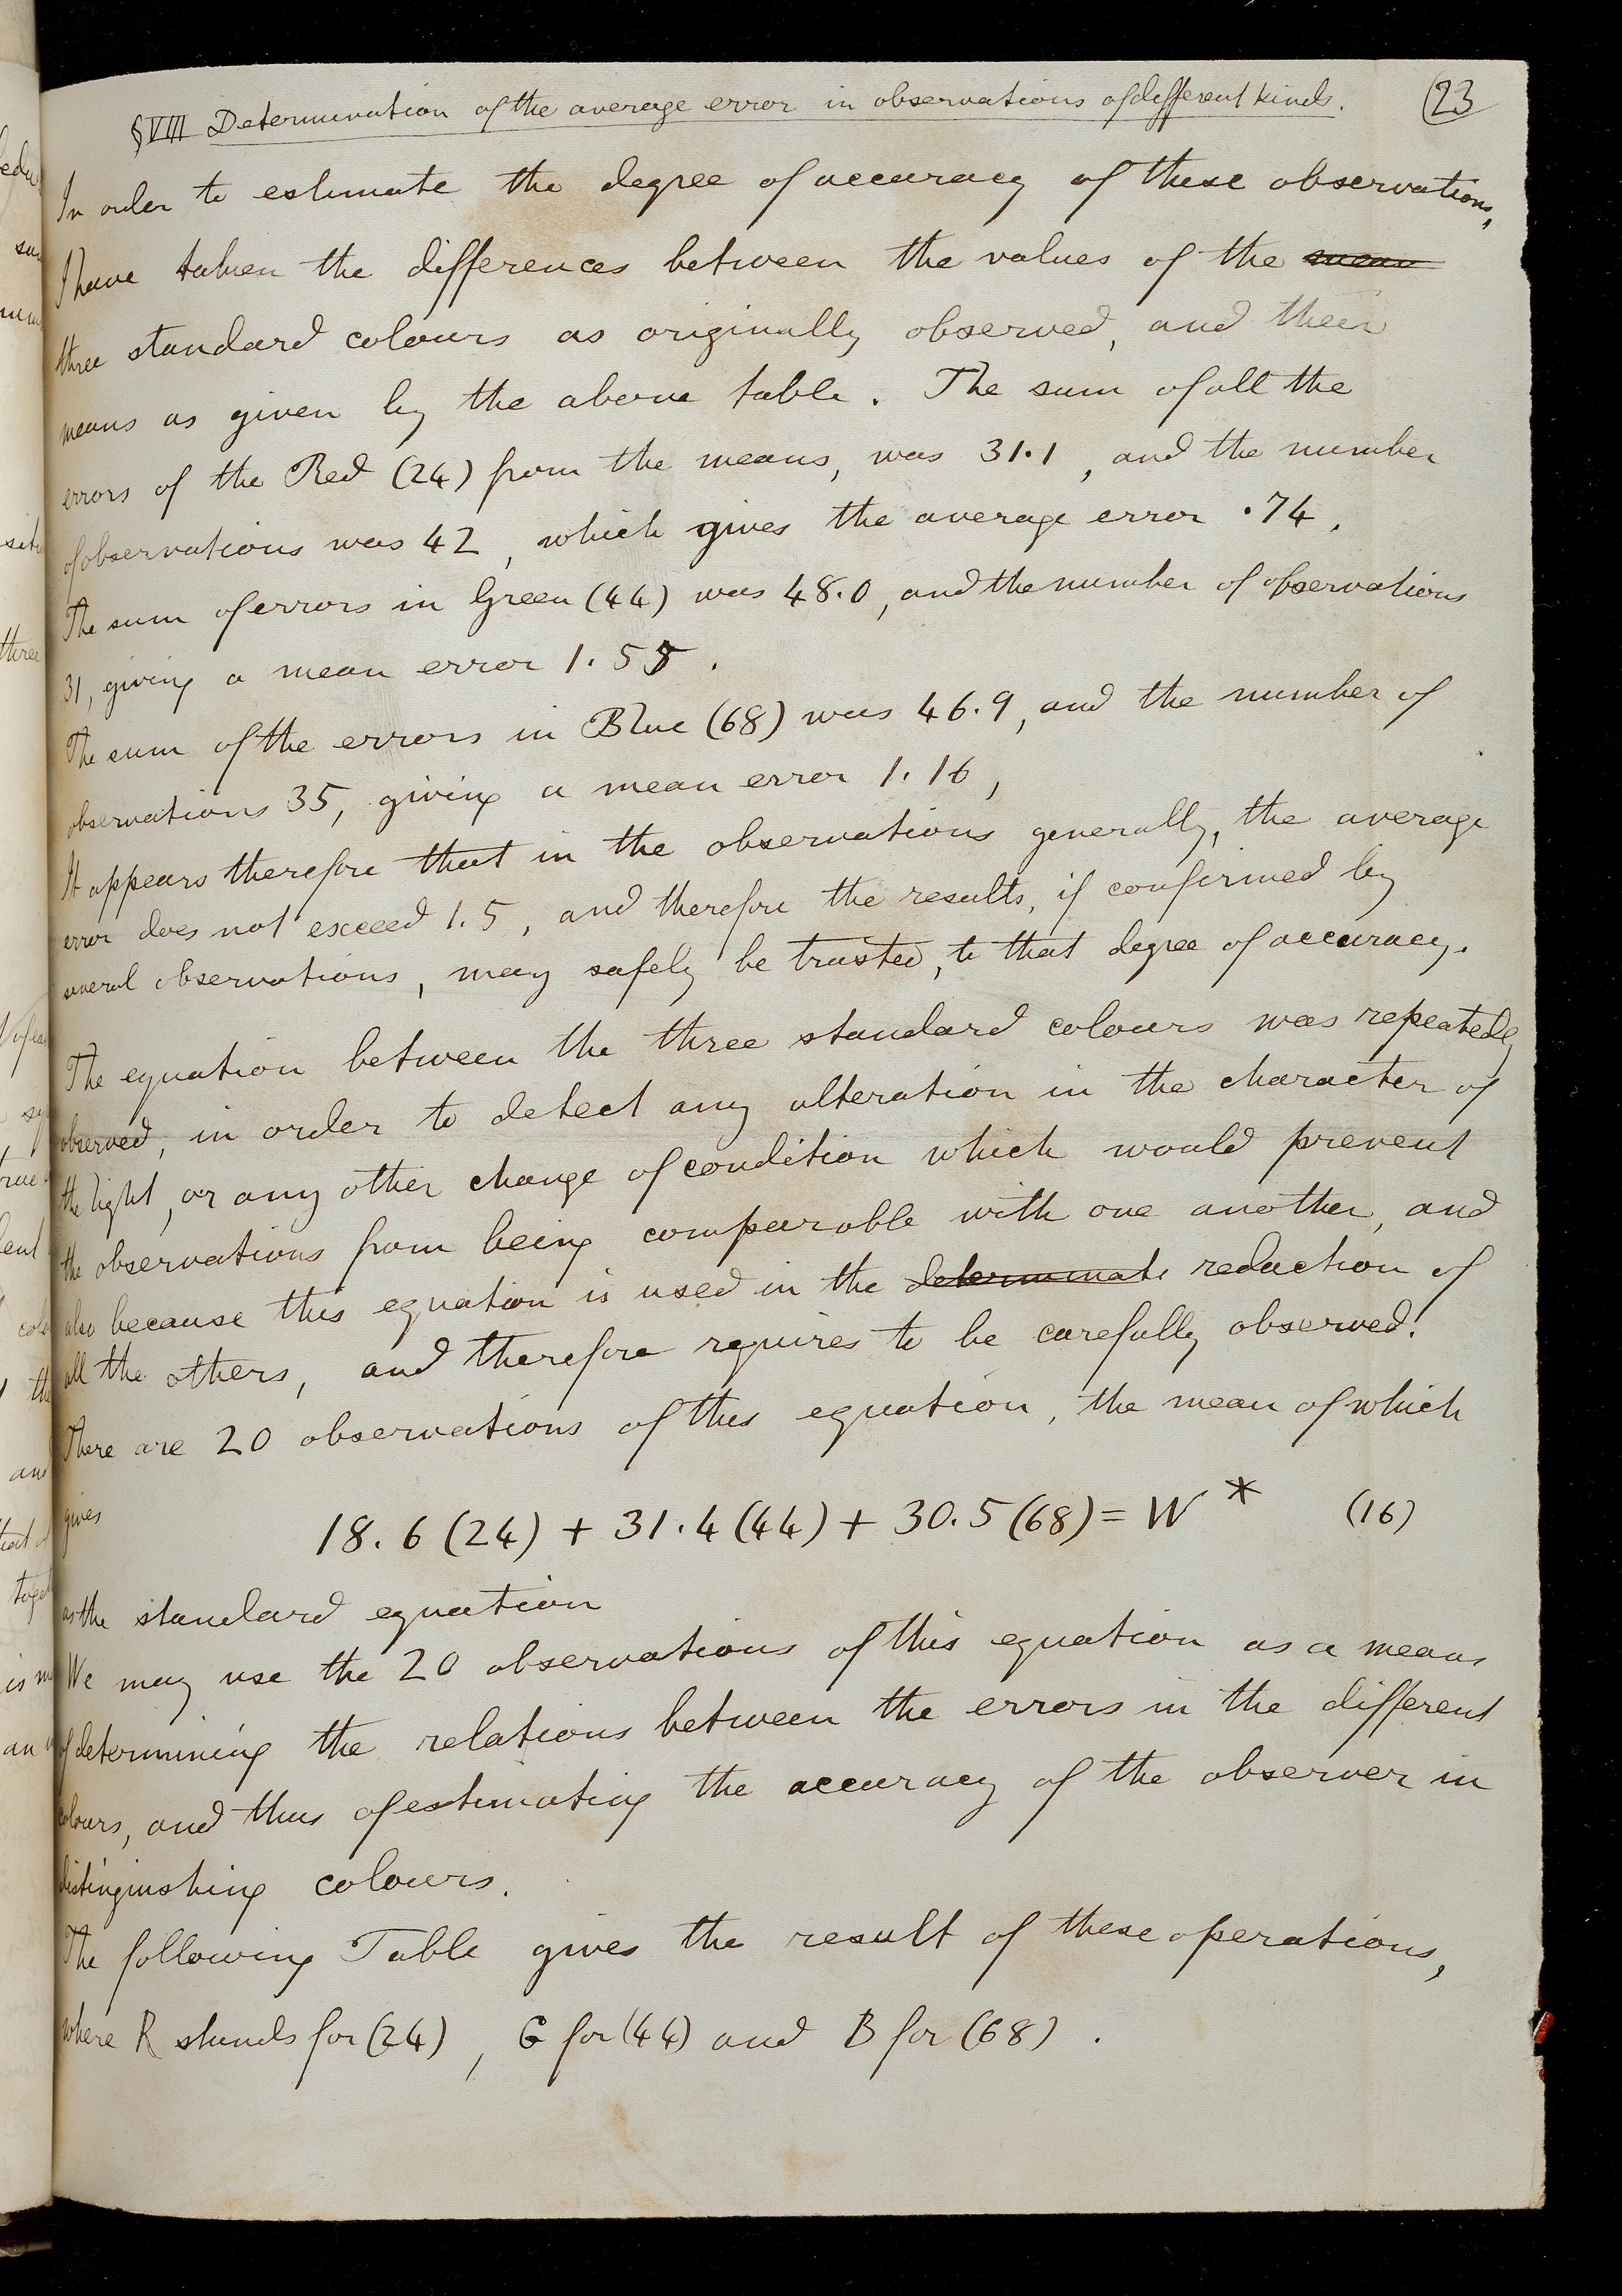 §VIII Determination of the average error in observations of different kinds. (23)
In order to estimate the degree of accuracy of these observations,
I have taken the differences between the values of the mean
three standard colours as originally observed, and their
means as given by the above table. The sum of all the
errors of the Red (24) from the means, was 31.1, and the number
of observations was 42, which gives the average error .74.
The sum of errors in Green (44) was 48.0, and the number of observations
31, giving a mean error 1.55.
The sum of the errors in Blue (68) was 46.9, and the number of
observations 35, giving a mean error 1.16,
It appears therefore that in the observations generally, the average
error does not exceed 1.5, and therefore the results, if confirmed by
several observations, may safely be trusted, to that degree of accuracy.
The equation between the three standard colours was repeatedly
observed, in order to detect any alteration in the character of
the light, or any other change of condition which would prevent
the observations from being comparable with one another, and
also because this equation is used in the determinati reduction of
all the others, and therefore requires to be carefully observed.
There are 20 observations of this equation, the mean of which
gives
18.6 (24) + 31.4 (44) + 30.5 (68) = W * (16)
as the standard equation
We may use the 20 observations of this equation as a means
of determining the relations between the errors in the different
colours, and thus of estimating the accuracy of the observer in
distinguishing colours.
The following Table gives the result of these operations,
where R stands for (24), G for (44) and B for (68).